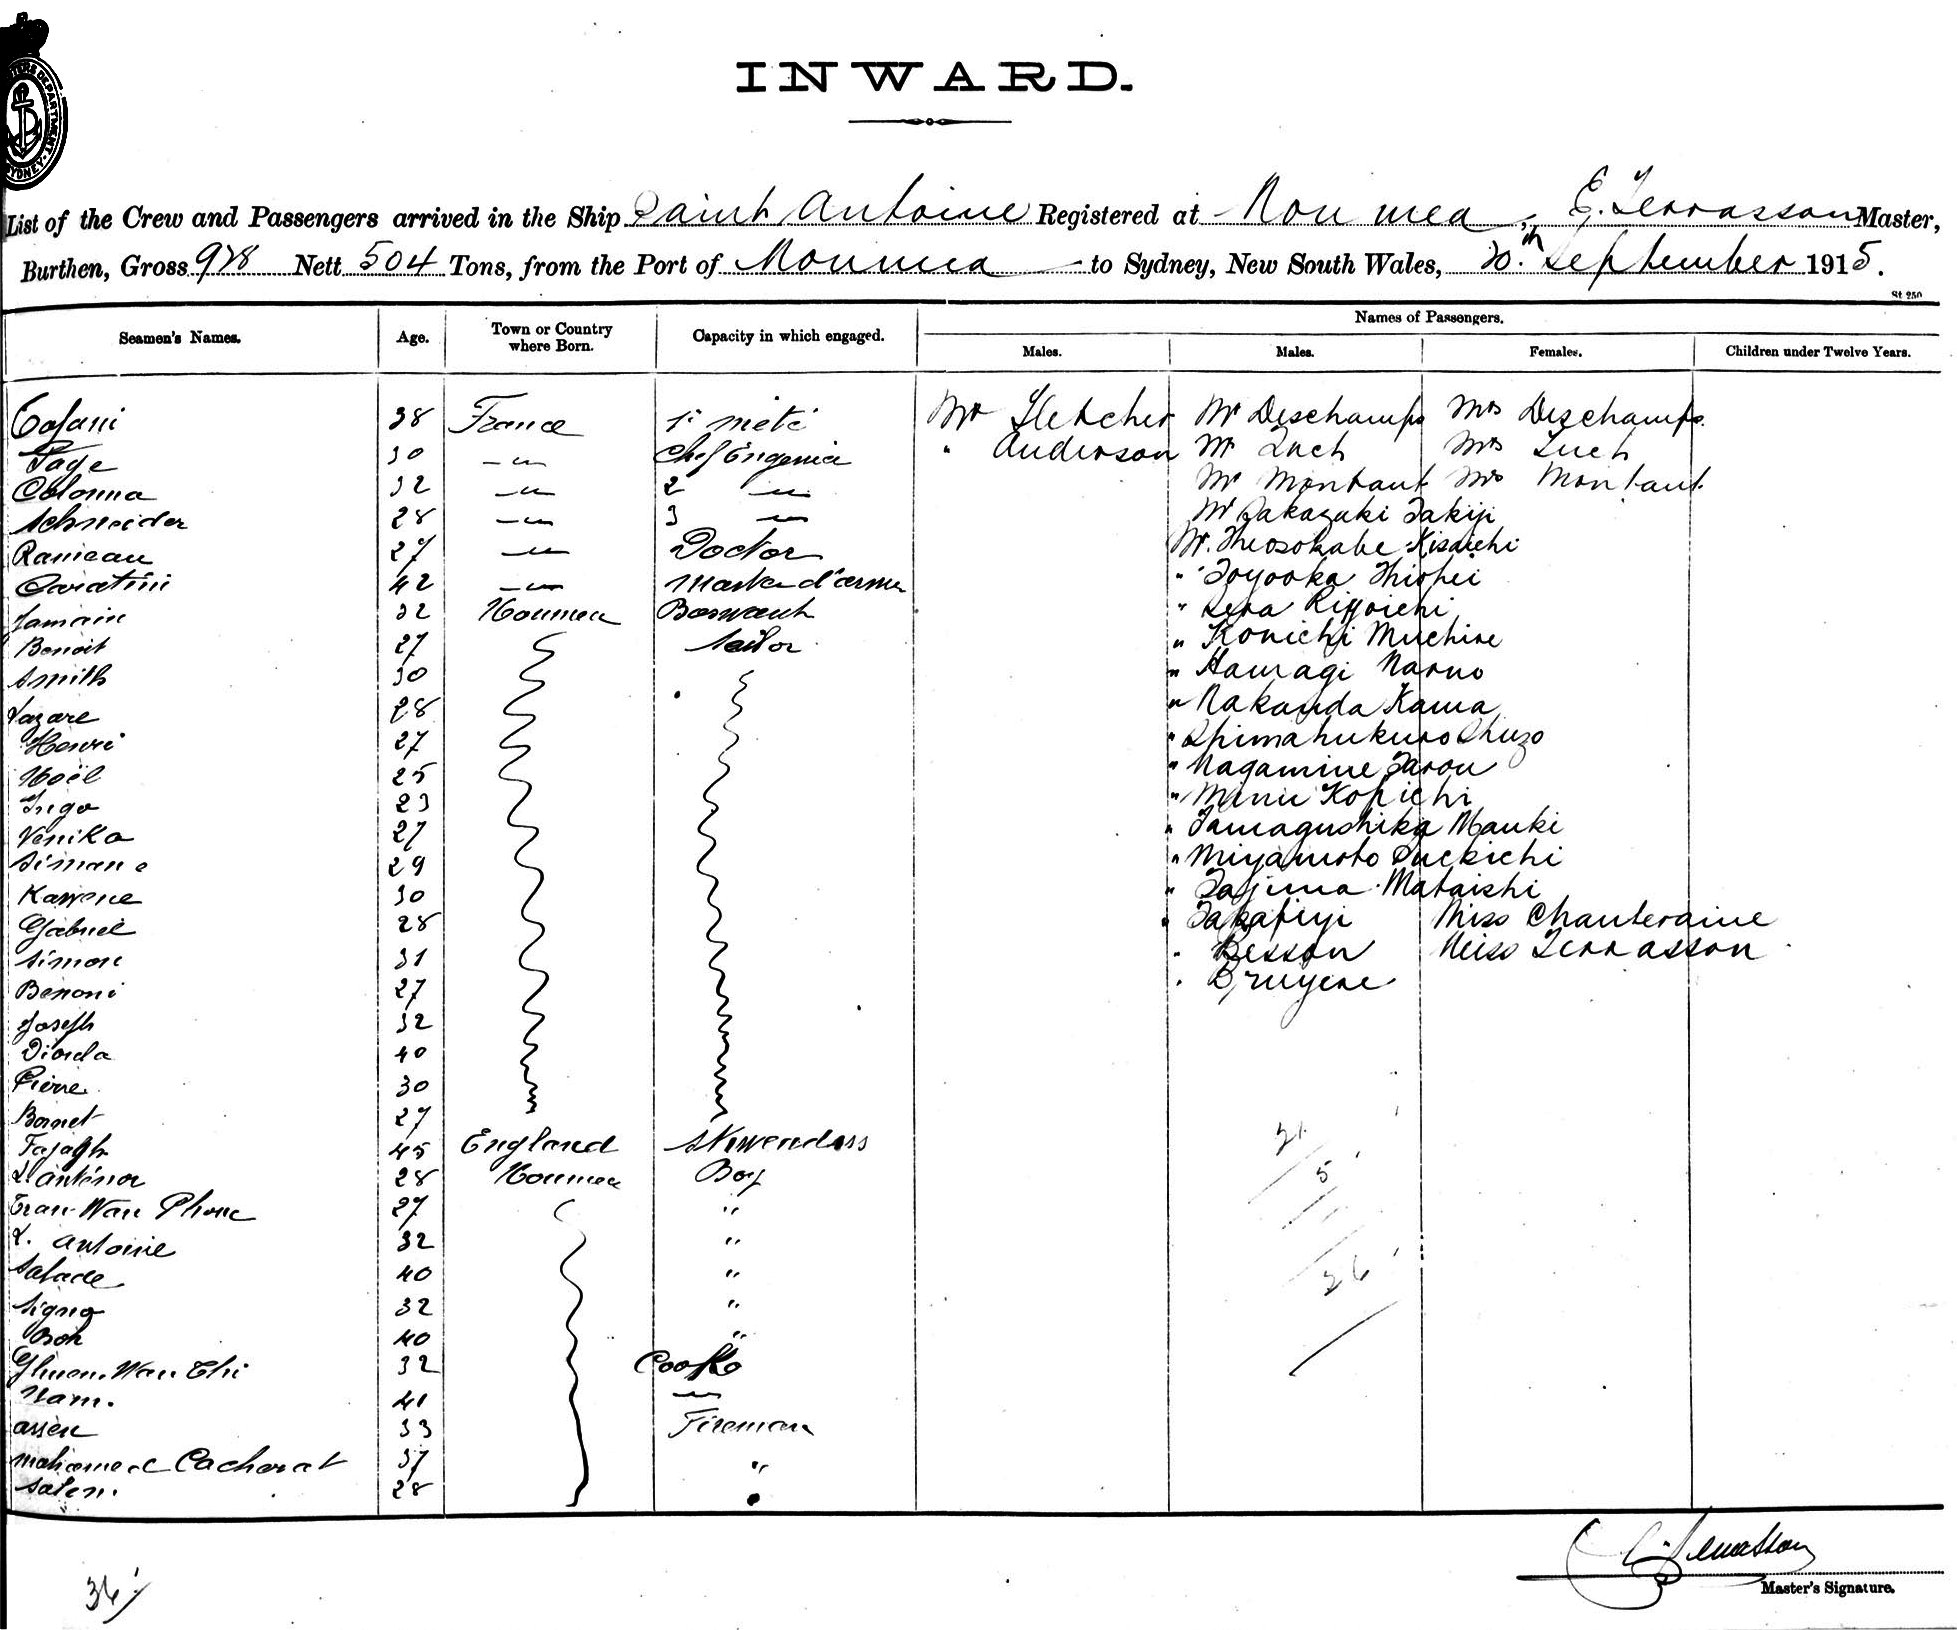 INWARD.
CUSTOMS DEPARTMENT · SYDNEY ·
List of the Crew and Passengers arrived in the Ship Saint Antoine Registered at Noumea, E. Terrasson Master,
Burthen, Gross 928 Nett 504 Tons, from the Port of Noumea to Sydney, New South Wales, 20th September 1915.
St 250
Seamen's Names. Age. Town or Country where Born. Capacity in which engaged. Names of Passengers.
Males. Males. Females. Children under Twelve Years.
Cosani 38 France 1r Mr Fletcher Mr Deschamps Mrs Deschamps
Page 30 -"- Chef Engenia " Anderson Mr Luch Mrs Luch
Colonna 32 -"- 2 -"- Mr Montaut Mrs Montaut
Schneider 28 -"- 3 -"- Mr Takazaki Takiji
Rameau 27 -"- Doctor Mr. Kisaichi
Caratini 42 -"- Master d'arme " Toyooka
Jamain 32 Noumea "
Benoit 27 Sailor " Konichi
Smith 30 "
Lazare 28 " Nakanda Kama
Henri 27 " Shimahukuro Shuzo
Noël 25 " Nagamine Tarou
Ingo 23 "
Venika 27 " Tamagushika Mauki
Simane 29 " Miyamoto
Kawene 30 " Tajima Mataishi
Gabriel 28 " Takafuji Miss Chanteraine
Simon 31 " Besson Miss Terrasson
Benoni 27 " Bruyere
Joseph 32
Dionda 40
Pierre 30
Bonnet 27
45 England
L'anténor 28 Noumea Boy
Tran Wan Phone 27 "
L. Antoine 32 "
Salade 40 "
Signo 32 "
40 "
Wan Thi 32
Nam. 41 -"-
Assen 33 Fireman
Mohamed Cacherat 37 "
Salem. 28 "
21
5
26
36
E. Terrasson
Master's Signature.